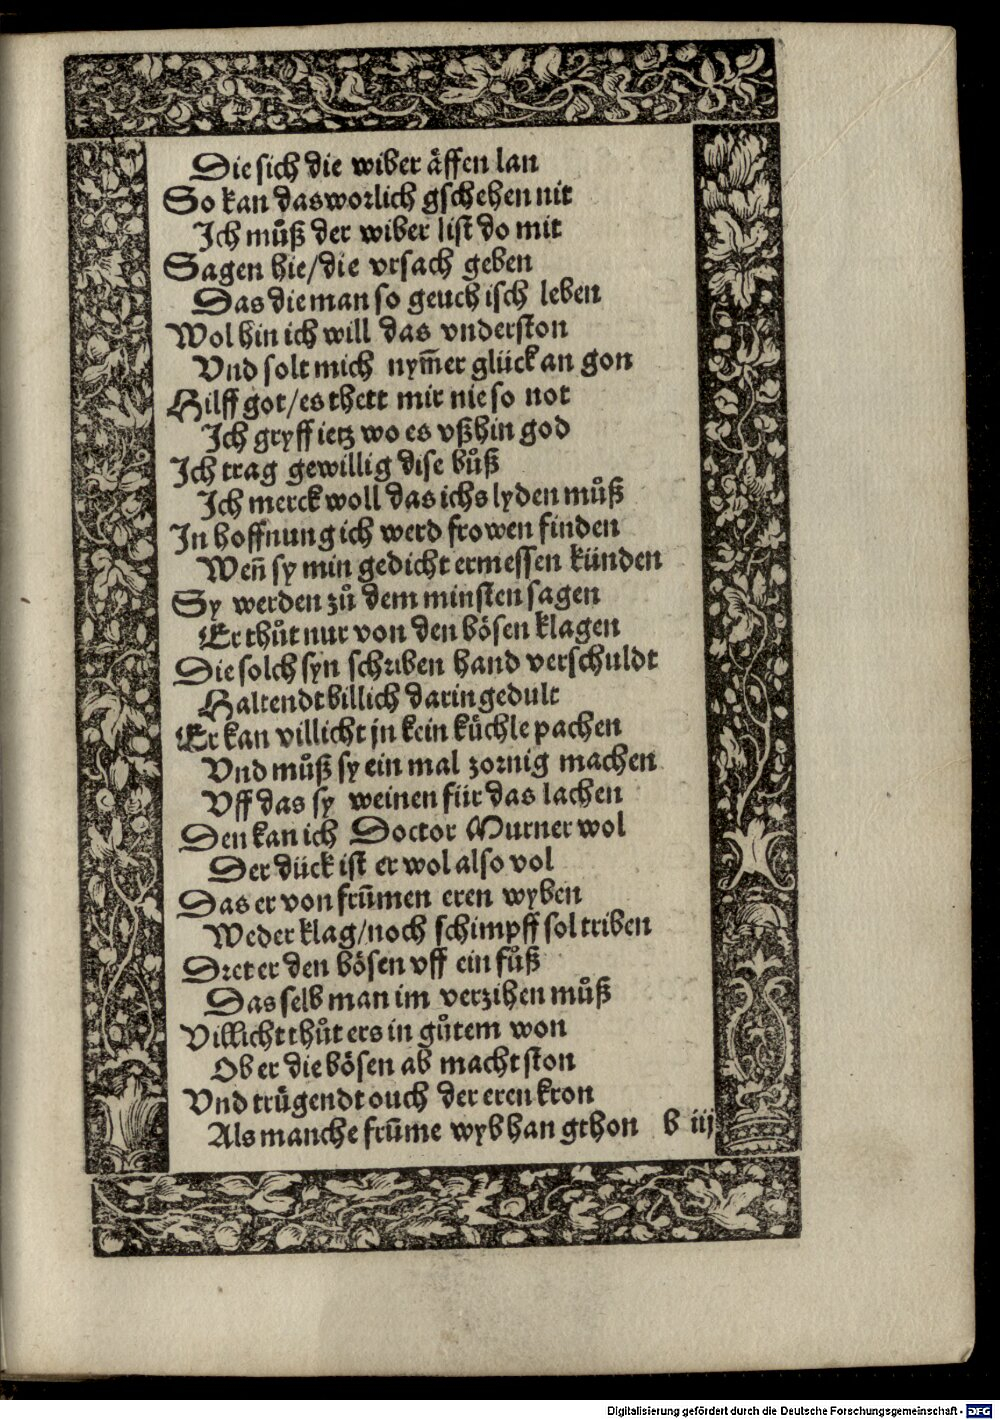 Die sich die wiber äffen lan
So kan das worlich gschehen nit
Ich můß der wiber list do mit
Sagen hie/die vrsach geben
Das die man so geuchisch leben
Wol hin ich will das vnderston
Vnd solt mich nym̄er glück an gon
Hilff got/es thett mir nie so not
Ich gryff ietz wo es vßhin god
Ich trag gewillig dise bůß
Ich merck woll das ichs lyden můß
In hoffnung ich werd frowen finden
Wen̄ sy min gedicht ermessen künden
Sy werden zů dem minsten sagen
Er thůt nur von den bösen klagen
Die solch syn schriben hand verschuldt
Haltendt billich darin gedult
Er kan villicht jn kein küchle pachen
Vnd můß sy ein mal zornig machen
Vff das sy weinen für das lachen
Den kan ich Doctor Murner wol
Der dück ist er wol also vol
Das er von frūmen eren wyben
Weder klag/noch schimpff sol triben
Dret er den bösen vff ein fůß
Das selb man im verzihen můß
Villicht thůt ers in gůtem won
Ob er die bösen ab macht ston
Vnd trügendt ouch der eren kron
Als manche frūme wyb han gthon b iij
Digitalisierung gefördert durch die Deutsche Forschungsgemeinschaft - DFG